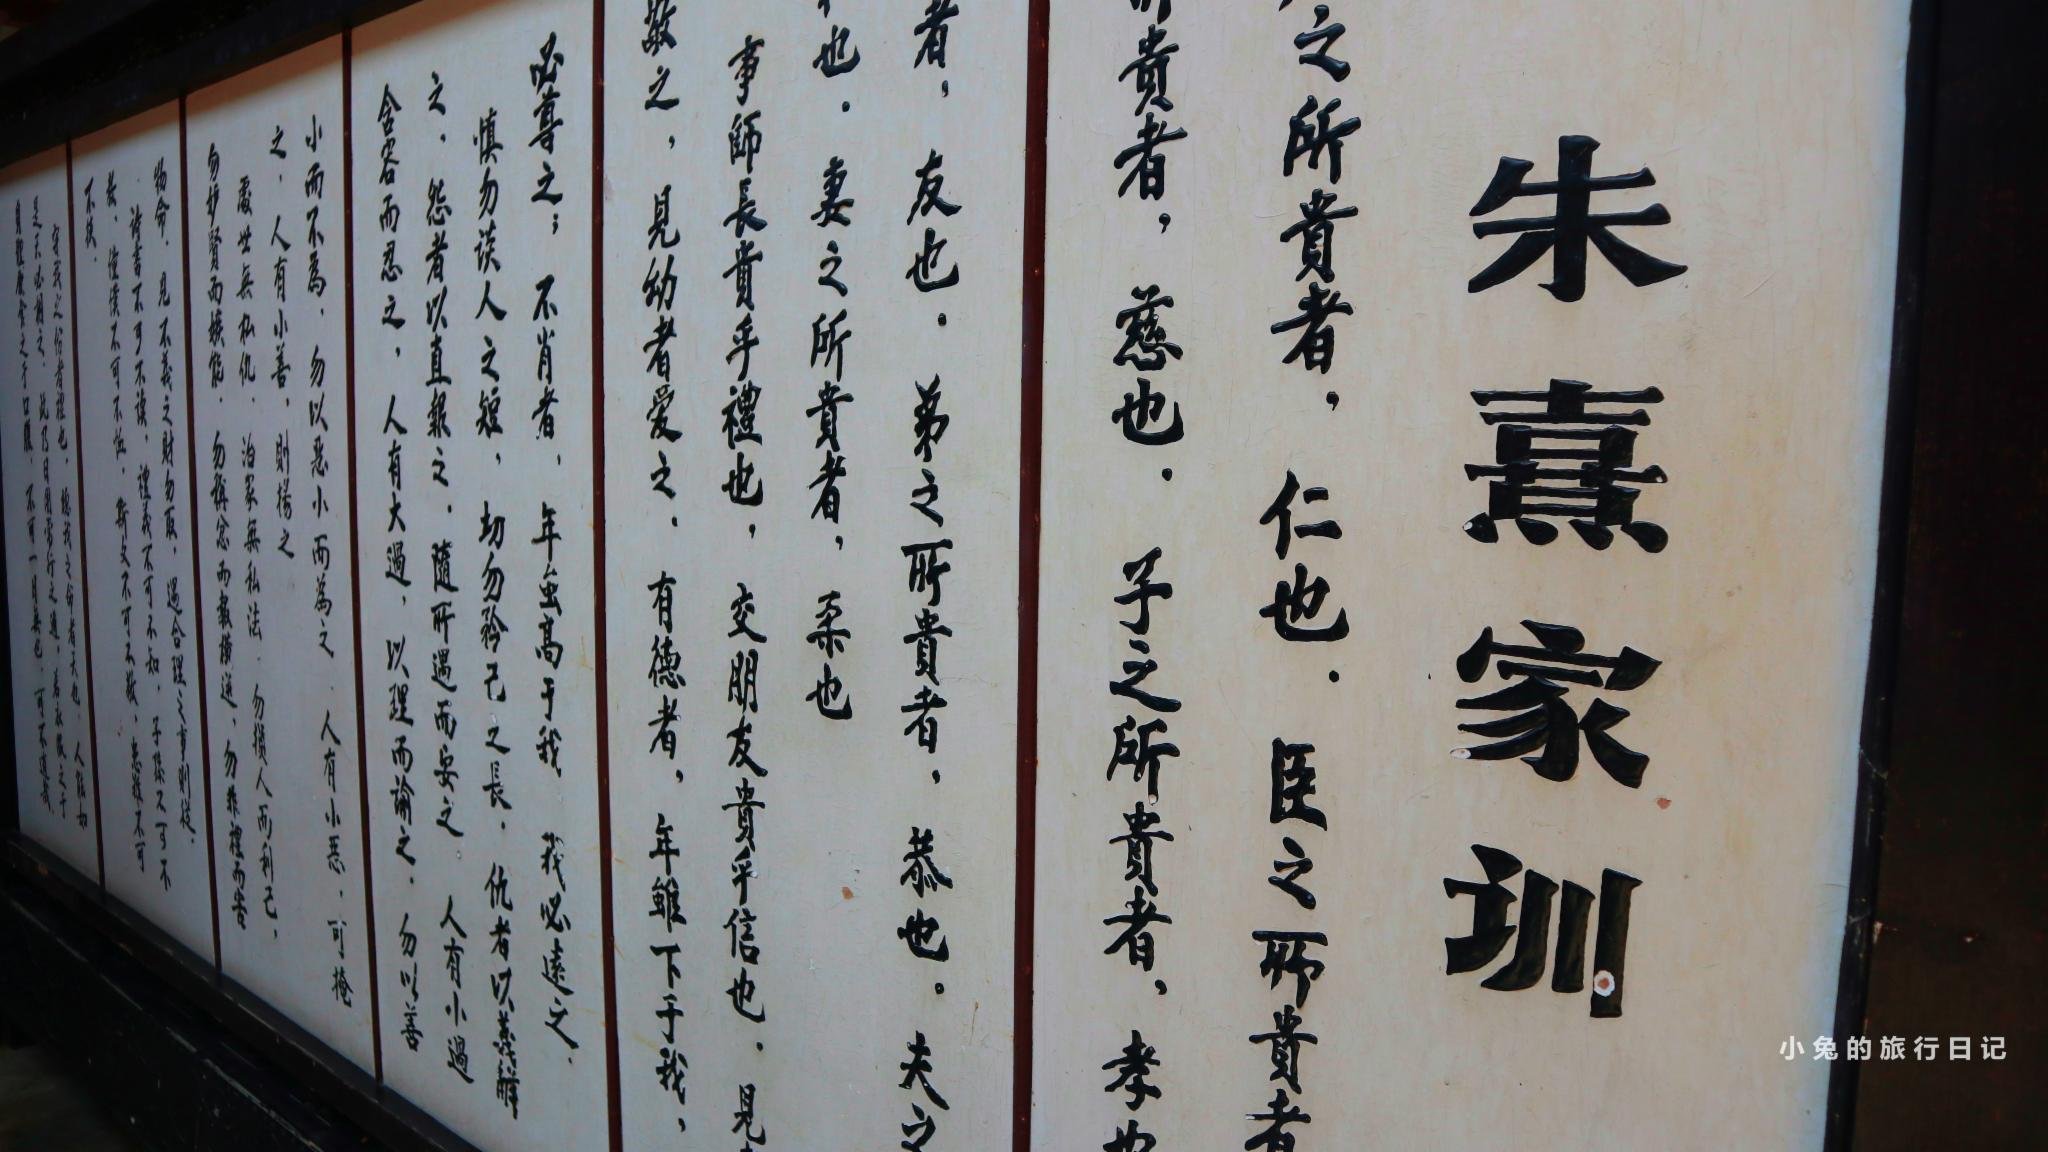 朱熹家训
之所貴者，仁也．臣之所貴者
所貴者，慈也．子之所貴者，孝也
者，友也．弟之所貴者，恭也．夫之
也．妻之所貴者，柔也
事師長貴乎禮也，交朋友貴乎信也．見
敬之，見幼者爱之．有德者，年雖下于我，
必尊之；不肖者，年虽高于我 我必遠之．
慎勿谈人之短，切勿矜己之長．仇者以義解
之，怨者以直報之．隨所遇而安之 人有小過
含容而忍之，人有大過，以理而諭之．勿以善
小而不為，勿以恶小而為之．人有小恶，可掩
之，人有小善，則揚之
處世無私仇．治家無私法．勿損人而利己，
勿妒賢而嫉能．勿稱忿而報橫逆，勿非禮而害
物命．見不義之財勿取，遇合理之事則從．
詩書不可不读，禮義不可不知，子孫不可不
教，僮僕不可不恤，斯文不可不敬，患難不可
不扶．
小兔的旅行日记